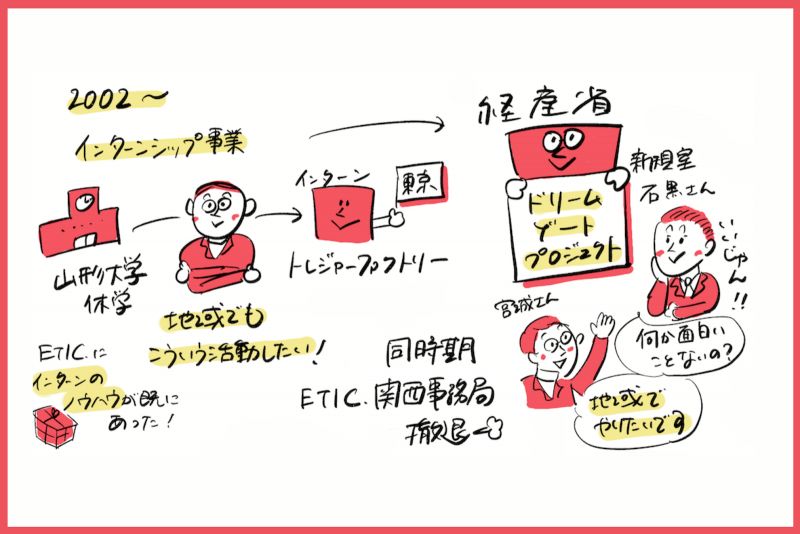 2002〜
インターンシップ事業
山形大学
休学
地域でも
こういう活動したい!
インターン
東京
トレジャーファクトリー
ETIC.に
インターンの
ノウハウが既に
あった!
経産省
ドリーム
ゲート
プロジェクト
新規室
石黒さん
いいじゃん!!
何か面白い
ことないの?
宮城さん
地域で
やりたいです
同時期
ETIC.関西事務局
撤退